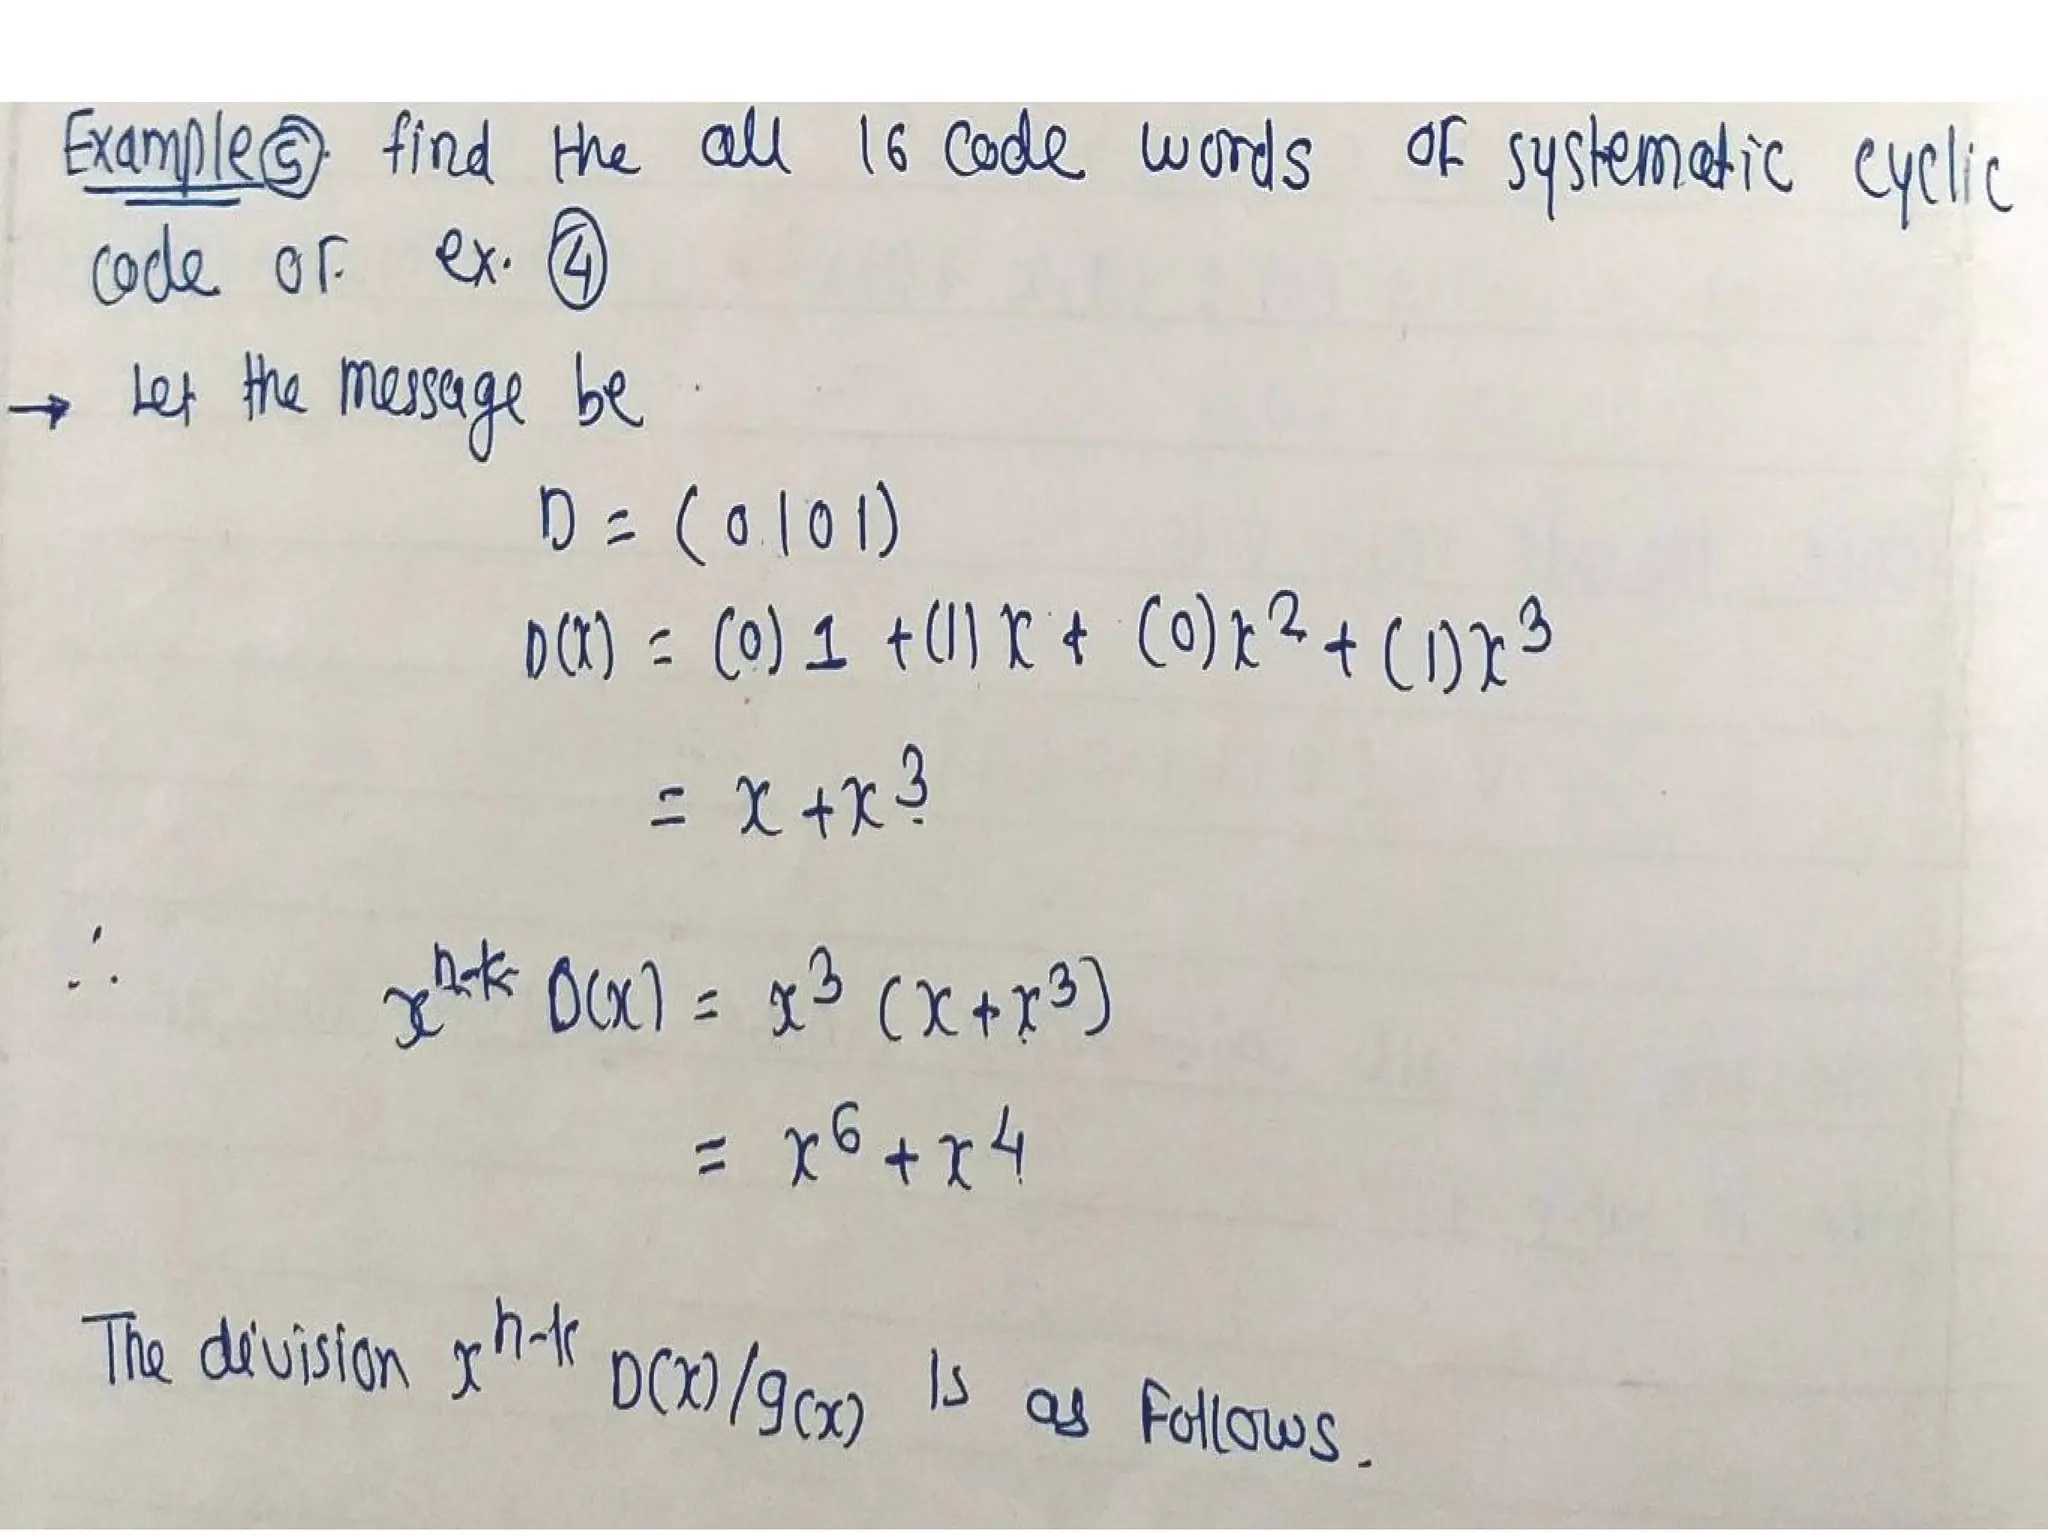 Example ⑤. find the all 16 code words of systematic cyclic
code of ex. ④
→ Let the message be
D = (0101)
D(X) = (0)1 + (1)x + (0)x² + (1)x³
= x + x³
∴ xⁿ⁻ᵏ D(x) = x³ (x + x³)
= x⁶ + x⁴
The division xⁿ⁻ᵏ D(x)/g(x) is as follows.